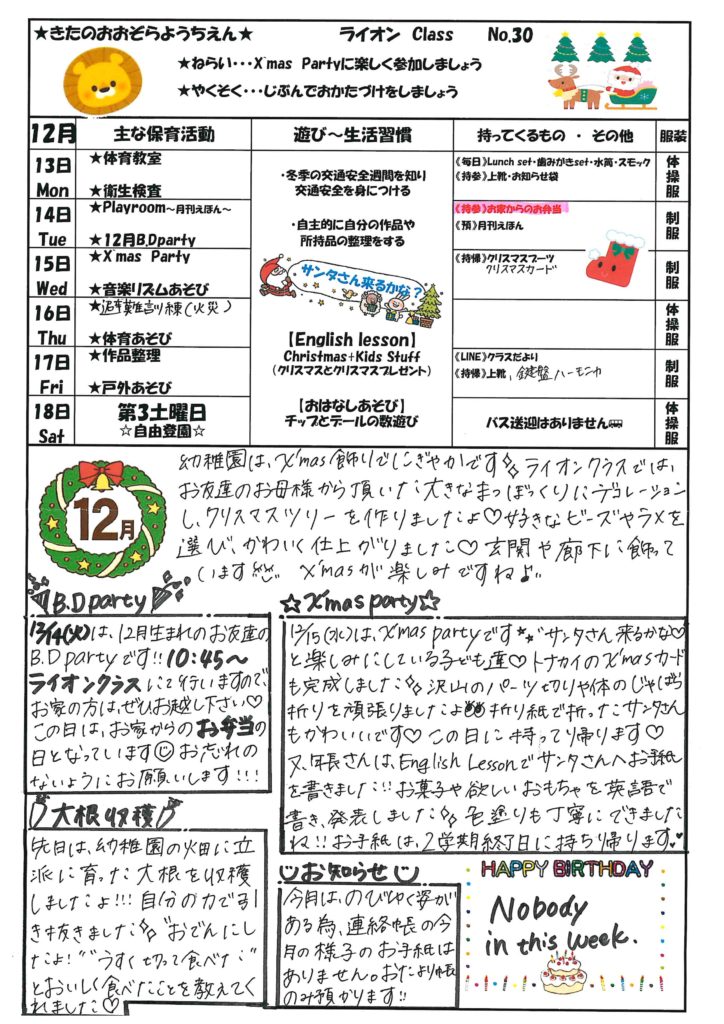 ★きたのおおぞらようちえん★ ライオン Class No.30
★ねらい・・・X'mas Partyに楽しく参加しましょう
★やくそく・・・じぶんでおかたづけをしましょう
12月 主な保育活動 遊び～生活習慣 持ってくるもの ・ その他 服装
13日 Mon
★体育教室
★衛生検査
《毎日》Lunch set・歯みがきset・水筒・スモック
《持参》上靴・お知らせ袋
体操服
14日 Tue
★Playroom～月刊えほん～
★12月B.Dparty
《持参》お家からのお弁当
《預》月刊えほん
制服
15日 Wed
★X'mas Party
★音楽リズムあそび
《持帰》クリスマスブーツ
クリスマスカード
制服
16日 Thu
★避難訓練(火災)
★体育あそび
体操服
17日 Fri
★作品整理
★戸外あそび
《LINE》クラスだより
《持帰》上靴、鍵盤ハーモニカ
制服
18日 Sat
第3土曜日
☆自由登園☆
バス送迎はありません
体操服
・冬季の交通安全週間を知り
交通安全を身につける
・自主的に自分の作品や
所持品の整理をする
サンタさん来るかな？
【English lesson】
Christmas+Kids Stuff
（クリスマスとクリスマスプレゼント）
【おはなしあそび】
チップとデールの数遊び
12月
幼稚園は、X'mas飾りでにぎやかです ライオンクラスでは、
お友達のお母様から頂いた大きなまつぼっくりにデコレーション
し、クリスマスツリーを作りましたよ♡好きなビーズやラメを
選び、かわいく仕上がりました♡玄関や廊下に飾って
います X'masが楽しみですねよ♪
B.Dparty
12/14(火)は、12月生まれのお友達の
B.Dpartyです!!10:45～
ライオンクラスにて行いますので、
お家の方は、ぜひお越し下さい♡
この日は、お家からのお弁当の
日となっています お忘れの
ないようにお願いします!!!
☆X'mas party☆
12/15(水)は、X'mas partyです "サンタさん来るかな♡"
と楽しみにしている子ども達♡トナカイのX'masカード
も完成しました 沢山のパーツ切りや体のじゃばら
折りを頑張りましたよ 折り紙で折ったサンタさん
もかわいいです♡この日に持って帰ります♡
又、年長さんは、English Lessonでサンタさんへお手紙
を書きました!!お菓子や欲しいおもちゃを英語で
書き、発表しました 色塗りも丁寧にできました
ね!!お手紙は、2学期終了日に持ち帰ります
大根収穫
先日は、幼稚園の畑に立
派に育った大根を収穫
しましたよ!!!自分の力で引
き抜きました "おでんにし
たよ!""うすく切って食べた!"
とおいしく食べたことを教えてく
れました♡
お知らせ
今月は、のびゆく姿が
ある為、連絡帳の今
月の様子のお手紙は
ありません。おたより帳
のみ預かります!!
HAPPY BIRTHDAY
Nobody
in this week.